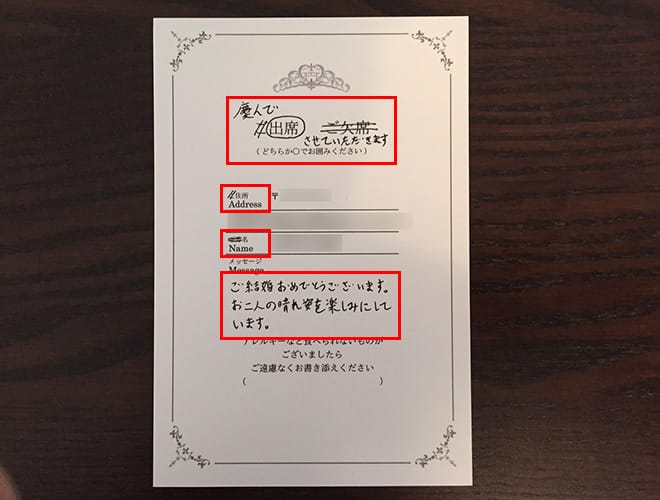 慶んで
出席 ご欠席
させていただきます
(どちらか〇でお囲みください)
住所 〒
Address
名
Name
メッセージ
Message
ご結婚おめでとうございます。
お二人の晴れ姿を楽しみにして
います。
アレルギーなど食べられないものが
ございましたら
ご遠慮なくお書き添えください
( )